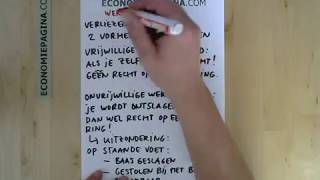 ECONOMIEPAGINA.COM
ECONOMIEPAGINA.COM
WER
VERLIEZE
2 VORME EN
VRIJWILLIGE D:
ALS JE ZELF
GEEN RECHT O
ONVRIJWILLIGE WER
JE WORDT ONTSLAGE
DAN WEL RECHT OP EE
RING!
↳ UITZONDERING:
OP STAANDE VOET:
- BAAS GESLAGEN
- GESTOLEN BIJ HET B